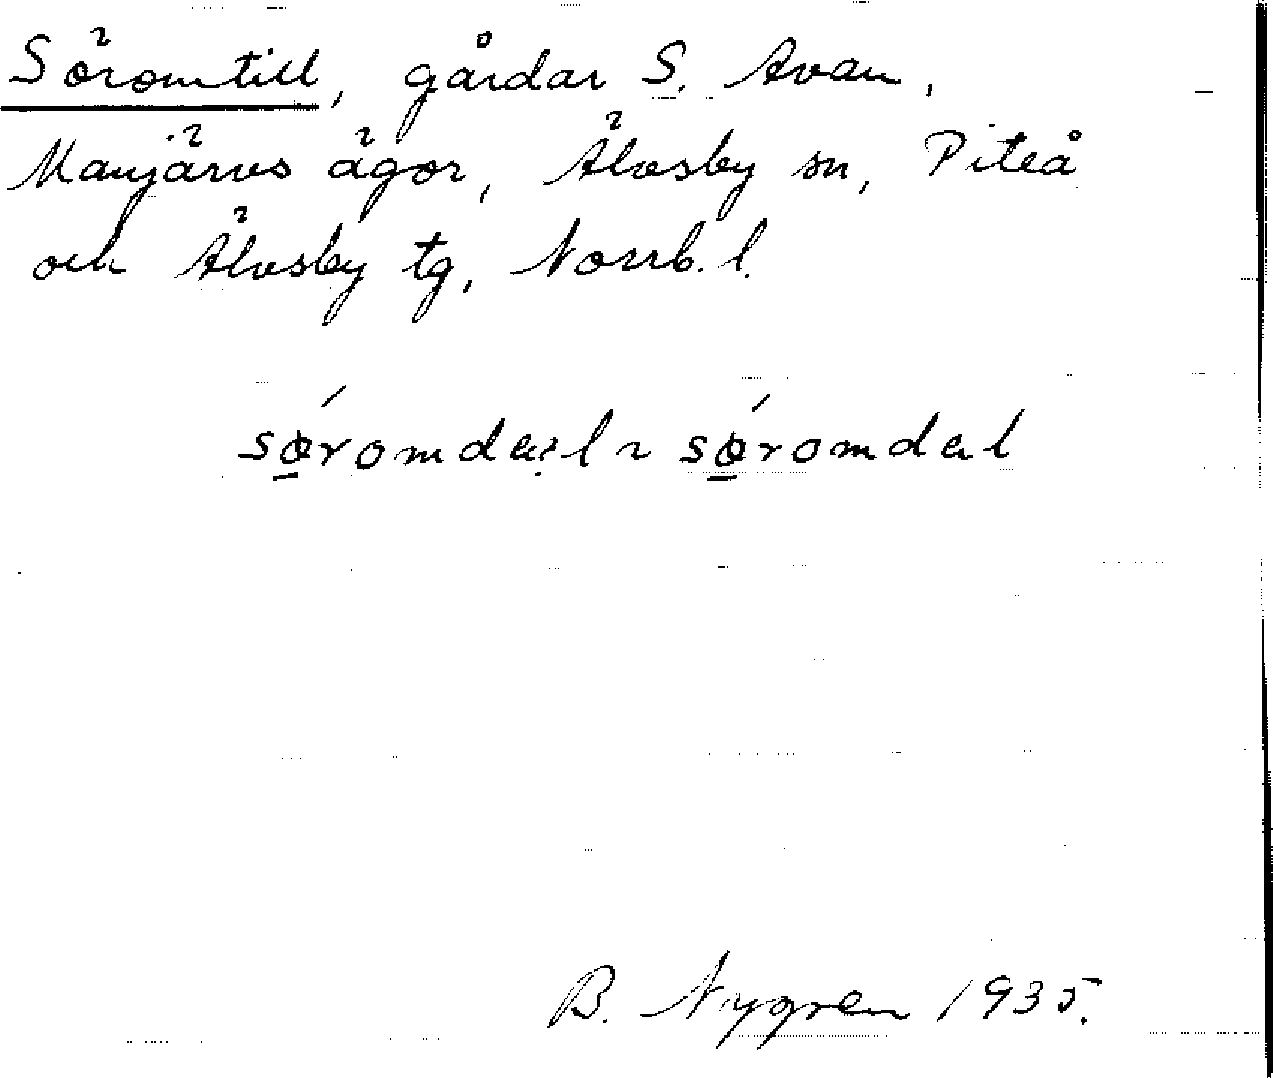 Söromtill, gårdar S. Avan,
Manjärvs ägor, Älvsby sn, Piteå
och Älvsby tg, Norrb. l.
sǿ̱romda:l ~ sǿ̱romdal
B. Nygren 1935.